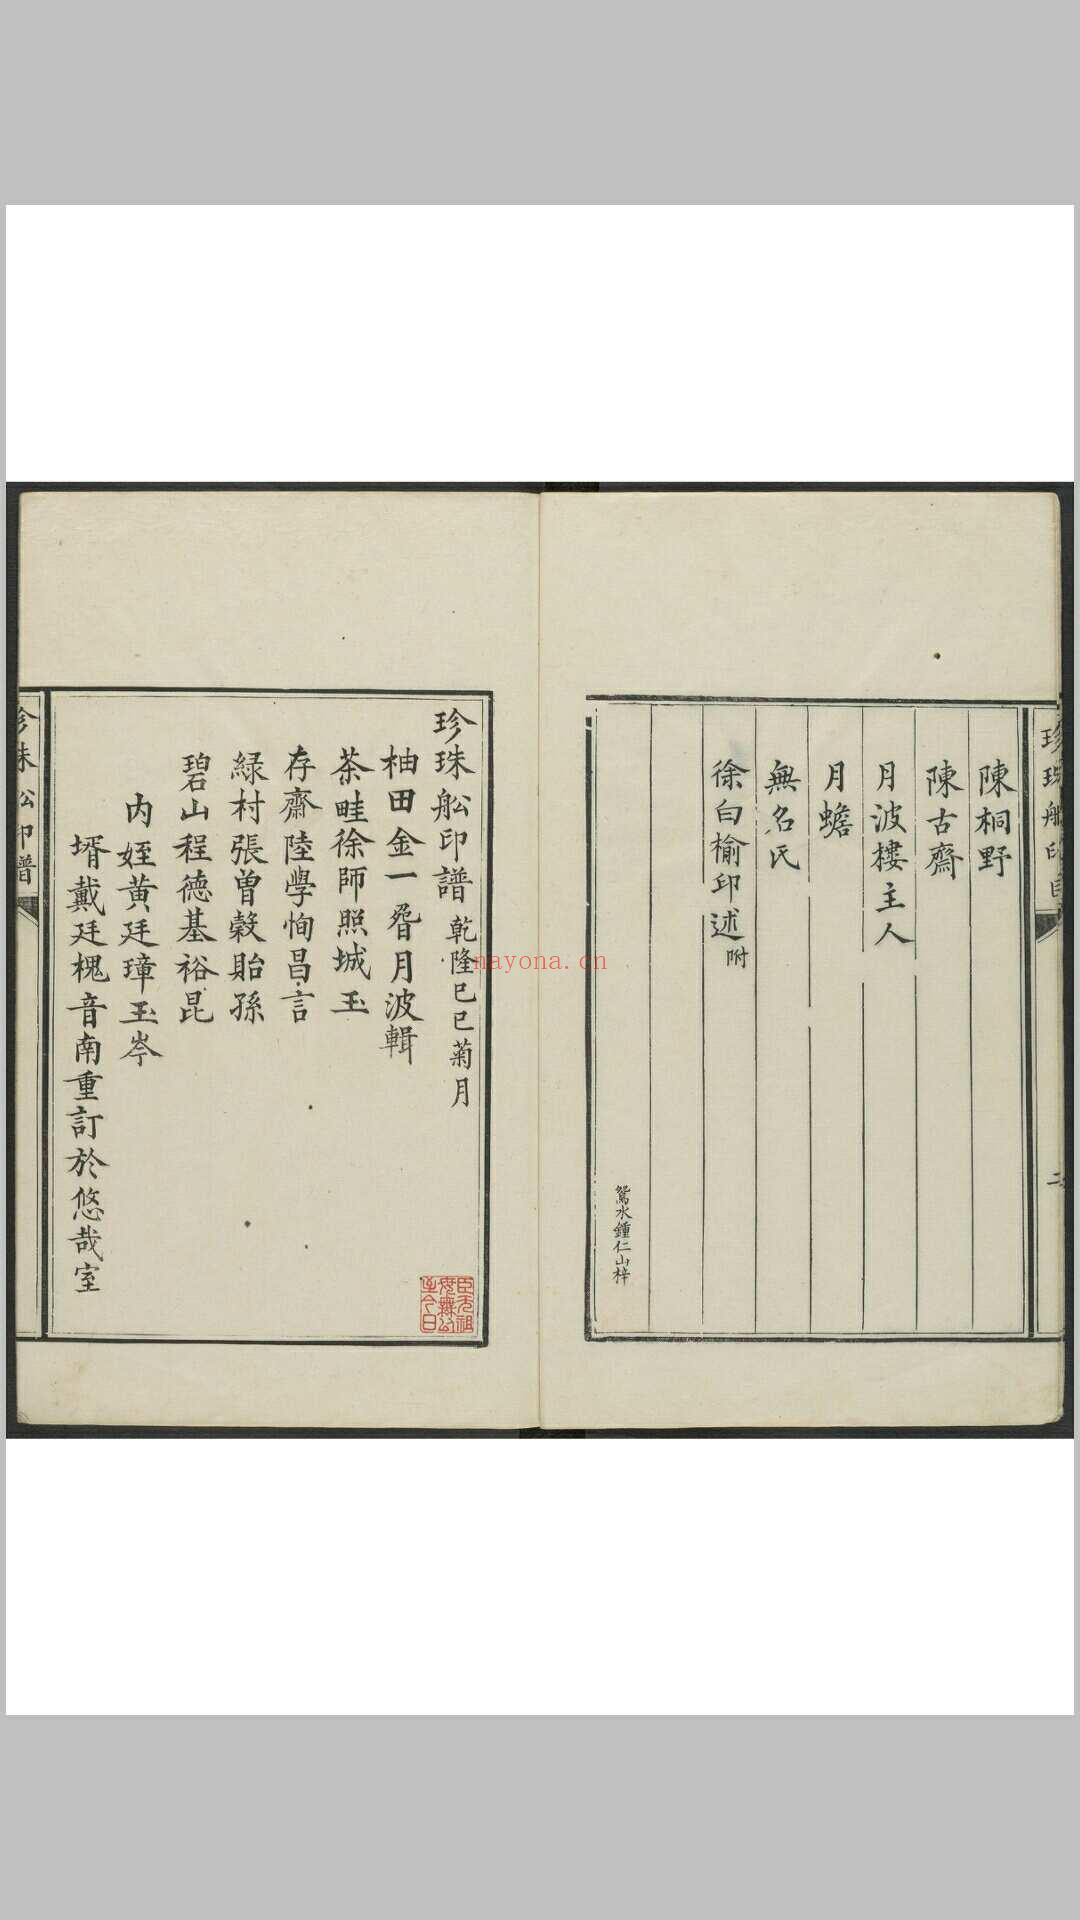 珍珠船印目
二
陳桐野
陳古齋
月波樓主人
月蟾
無名氏
徐白榆印述附
鴛水鍾仁山梓
珍珠舩印譜 乾隆己巳菊月
柚田金一疁月波輯
茶畦徐師照城玉
存齋陸學恂昌言
緑村張曽穀貽孫
碧山程德基裕昆
内姪黄廷璋玉岑
壻戴廷槐音南重訂於悠哉室
珍珠舩印譜
nayona.cn